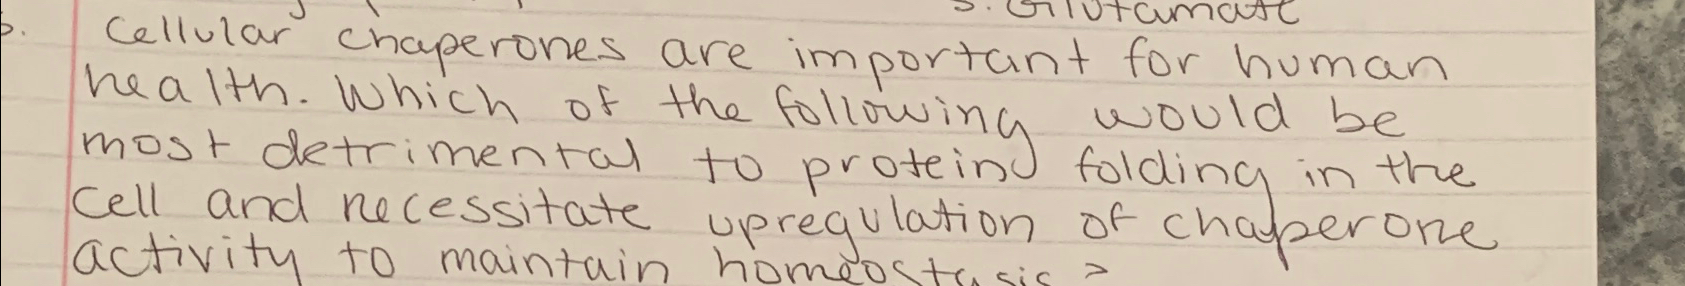 5. Glutamate
Cellular chaperones are important for human
health. Which of the following would be
most detrimental to protein folding in the
cell and necessitate upregulation of chaperone
activity to maintain homeostasis?